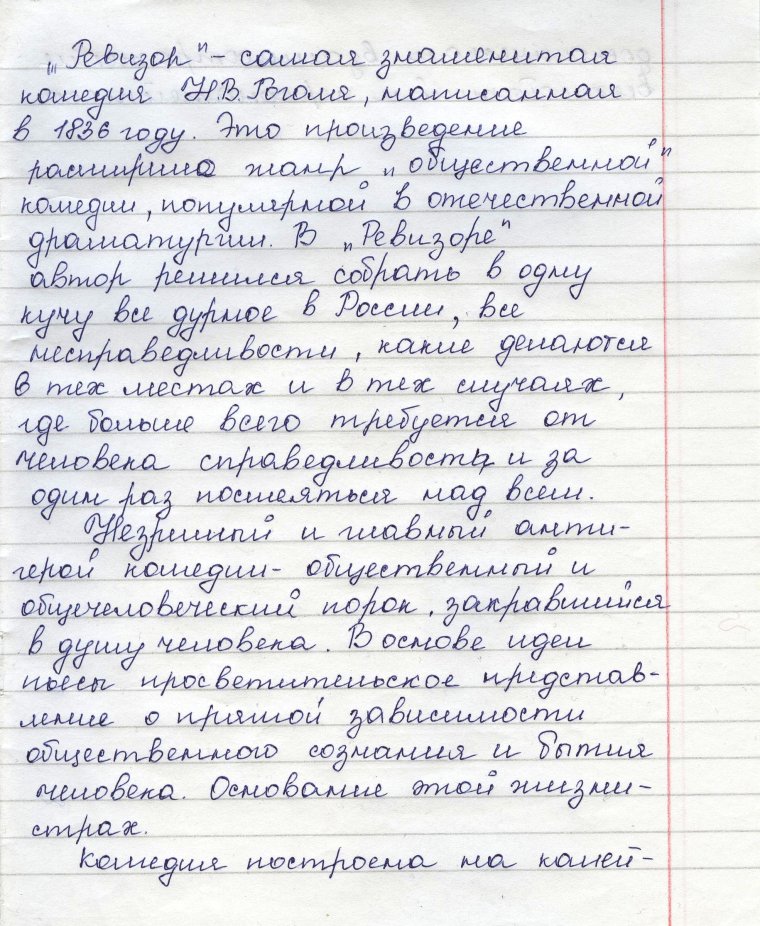 „Ревизор" – самая знаменитая
комедия Н.В. Гоголя, написанная
в 1836 году. Это произведение
расширило жанр „общественной"
комедии, популярной в отечественной
драматургии. В „Ревизоре"
автор решился собрать в одну
кучу все дурное в России, все
несправедливости, какие делаются
в тех местах и в тех случаях,
где больше всего требуется от
человека справедливости и за
один раз посмеяться над всем.
Незримый и главный анти-
герой комедии - общественный и
общечеловеческий порок, закравшийся
в душу человека. В основе идеи
пьесы просветительское представ-
ление о прямой зависимости
общественного сознания и бытия
человека. Основание этой жизни -
страх.
Комедия построена на комей-